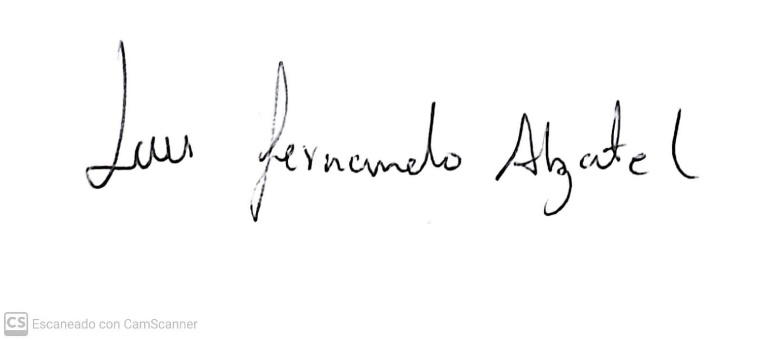 Luis fernando Alzate L
CS Escaneado con CamScanner